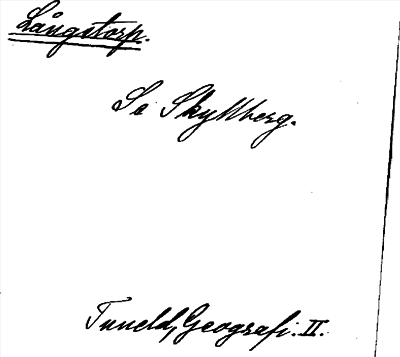 Långstorp.
Se Skyllberg.
Tuneld, Geografi. II.